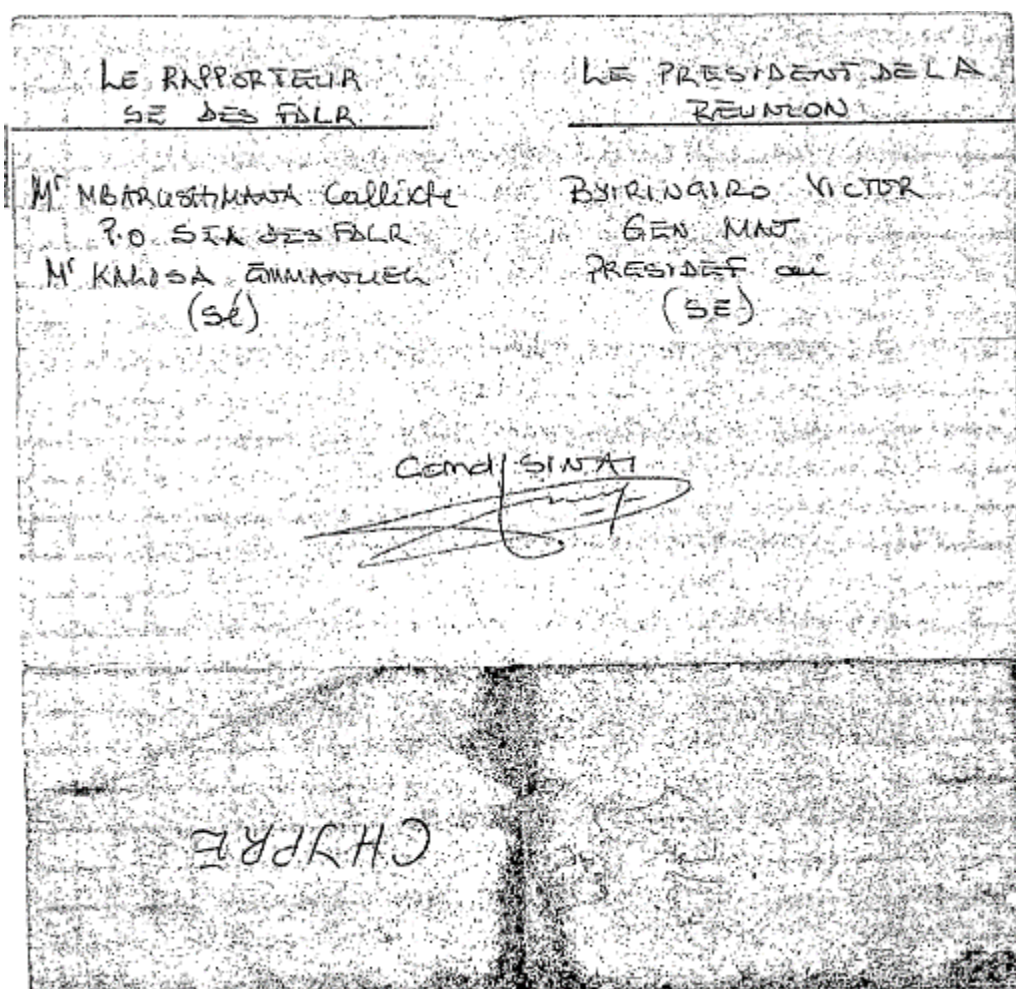 LE RAPPORTEUR
SE DES FDLR
Mr MBARUSHIMANA Callixte
P.O SEA DES FDLR
Mr KALISA EMMANUEL
(Sé)
LE PRESIDENT DE LA
REUNION
BYIRINGIRO VICTOR
GEN MAJ
PRESIDEF ai
(SE)
Comd SINAI
CHYPRE